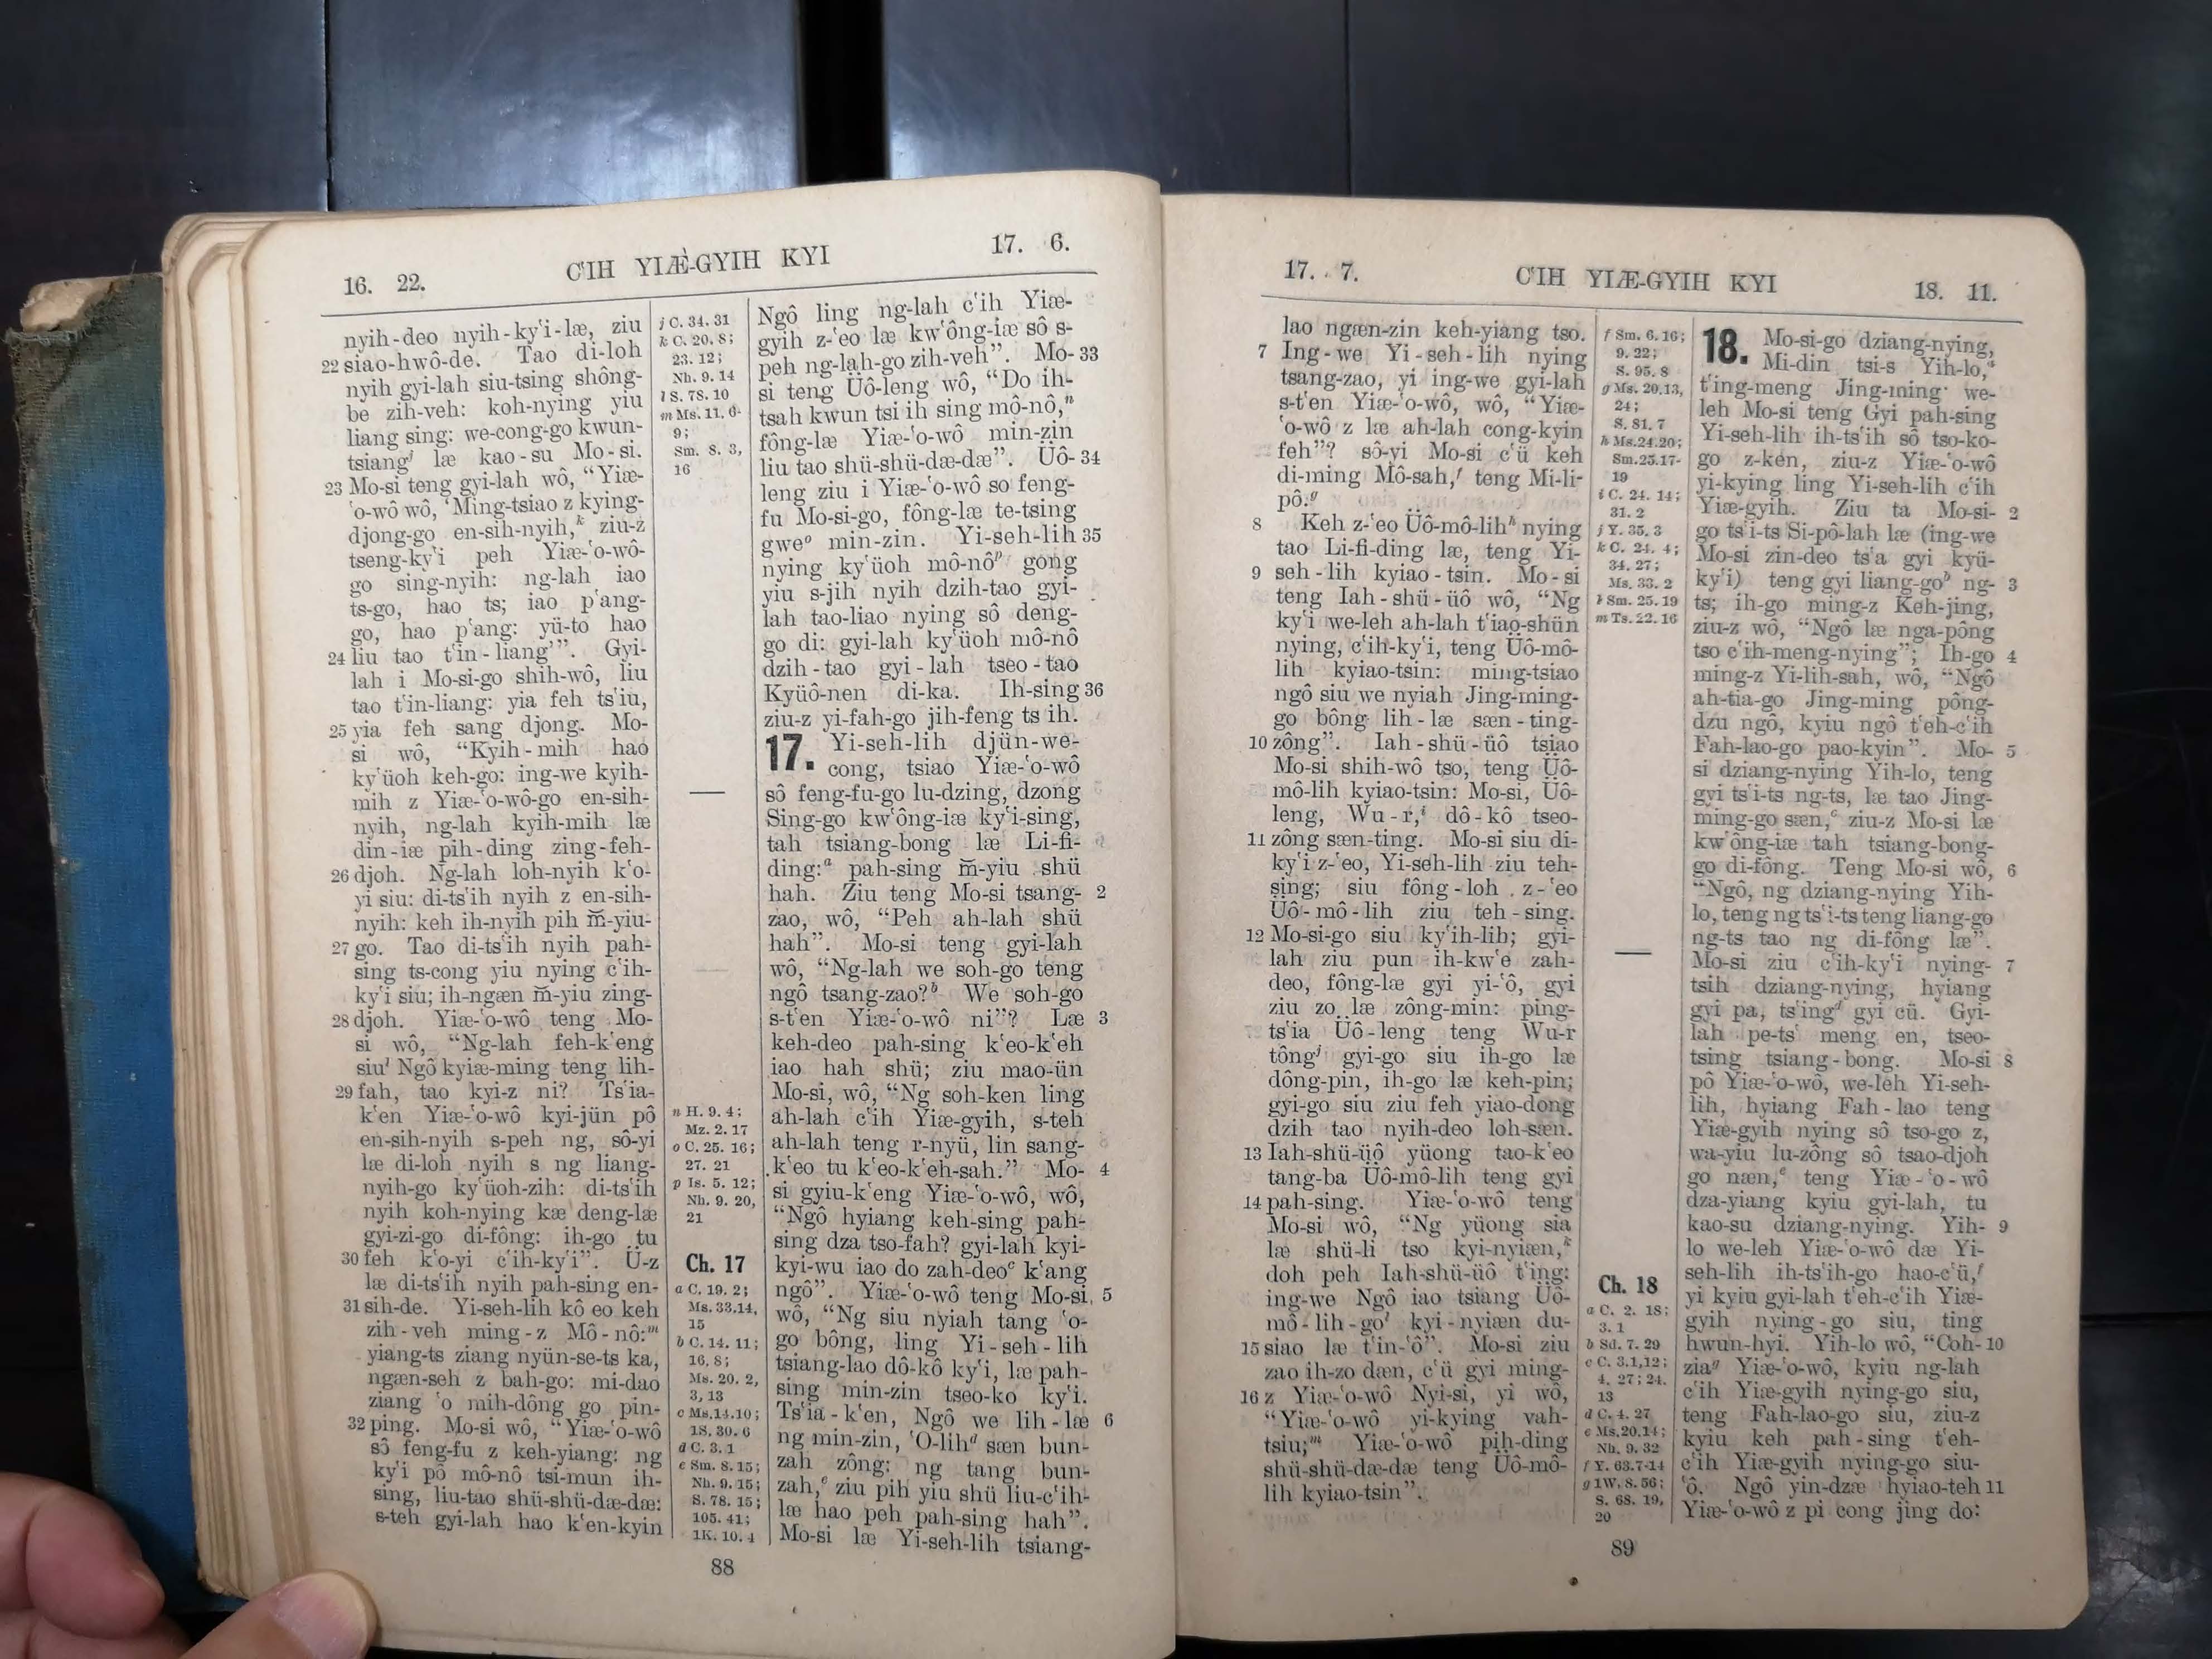 16. 22.
C‘IH YIÆ-GYIH KYI
17. 6.
nyih-deo nyih-ky‘i-læ, ziu
22 siao-hwô-de. Tao di-loh
nyih gyi-lah siu-tsing shông-
be zih-veh: koh-nying yiu
liang sing: we-cong-go kwun-
tsiangʲ læ kao-su Mo-si.
23 Mo-si teng gyi-lah wô, “Yiæ-
‘o-wô wô, ‘Ming-tsiao z kying-
djong-go en-sih-nyih,ᵏ ziu-z
tseng-ky‘i peh Yiæ-‘o-wô-
go sing-nyih: ng-lah iao
ts-go, hao ts; iao p‘ang-
go, hao p‘ang: yü-to hao
24 liu tao t‘in-liang’”. Gyi-
lah i Mo-si-go shih-wô, liu
tao t‘in-liang: yia feh ts‘iu,
25 yia feh sang djong. Mo-
si wô, “Kyih-mih hao
ky‘üoh keh-go: ing-we kyih-
mih z Yiæ-‘o-wô-go en-sih-
nyih, ng-lah kyih-mih læ
din-iæ pih-ding zing-feh-
26 djoh. Ng-lah loh-nyih k‘o-
yi siu: di-ts‘ih nyih z en-sih-
nyih: keh ih-nyih pih m̆-yiu-
27 go. Tao di-ts‘ih nyih pah-
sing ts-cong yiu nying c‘ih-
ky‘i siu; ih-ngæn m̆-yiu zing-
28 djoh. Yiæ-‘o-wô teng Mo-
si wô, “Ng-lah feh-k‘eng
siuˡ Ngô kyiæ-ming teng lih-
29 fah, tao kyi-z ni? Ts‘ia-
k‘en Yiæ-‘o-wô kyi-jün pô
en-sih-nyih s-peh ng, sô-yi
læ di-loh nyih s ng liang-
nyih-go ky‘üoh-zih: di-ts‘ih
nyih koh-nying kæ deng-læ
gyi-zi-go di-fông: ih-go tu
30 feh k‘o-yi c‘ih-ky‘i”. Ü-z
læ di-ts‘ih nyih pah-sing en-
31 sih-de. Yi-seh-lih kô eo keh
zih-veh ming-z Mô-nô:ᵐ
yiang-ts ziang nyün-se-ts ka,
ngæn-seh z bah-go: mi-dao
ziang ‘o mih-dông go pin-
32 ping. Mo-si wô, “Yiæ-‘o-wô
sô feng-fu z keh-yiang: ng
ky‘i pô mô-nô tsi-mun ih-
sing, liu-tao shü-shü-dæ-dæ:
s-teh gyi-lah hao k‘en-kyin
j C. 34. 31
k C. 20. 8;
23. 12;
Nh. 9. 14
l S. 78. 10
m Ms. 11. 6-
9;
Sm. 8. 3,
16
n H. 9. 4;
Mz. 2. 17
o C. 25. 16;
27. 21
p Is. 5. 12;
Nh. 9. 20,
21
Ch. 17
a C. 19. 2;
Ms. 33.14,
15
b C. 14. 11;
16. 8;
Ms. 20. 2,
3, 13
c Ms.14.10;
1S. 30. 6
d C. 3. 1
e Sm. 8. 15;
Nh. 9. 15;
S. 78. 15;
105. 41;
1K. 10. 4
Ngô ling ng-lah c‘ih Yiæ-
gyih z-‘eo læ kw‘ông-iæ sô s-
peh ng-lah-go zih-veh”. Mo- 33
si teng Üô-leng wô, “Do ih-
tsah kwun tsi ih sing mô-nô,ⁿ
fông-læ Yiæ-‘o-wô min-zin
liu tao shü-shü-dæ-dæ”. Üô- 34
leng ziu i Yiæ-‘o-wô so feng-
fu Mo-si-go, fông-læ te-tsing
gweᵒ min-zin. Yi-seh-lih 35
nying ky‘üoh mô-nôᵖ gong
yiu s-jih nyih dzih-tao gyi-
lah tao-liao nying sô deng-
go di: gyi-lah ky‘üoh mô-nô
dzih-tao gyi-lah tseo-tao
Kyüô-nen di-ka. Ih-sing 36
ziu-z yi-fah-go jih-feng ts ih.
17. Yi-seh-lih djün-we-
cong, tsiao Yiæ-‘o-wô
sô feng-fu-go lu-dzing, dzong
Sing-go kw‘ông-iæ ky‘i-sing,
tah tsiang-bong læ Li-fi-
ding:ᵃ pah-sing m̆-yiu shü
hah. Ziu teng Mo-si tsang- 2
zao, wô, “Peh ah-lah shü
hah”. Mo-si teng gyi-lah
wô, “Ng-lah we soh-go teng
ngô tsang-zao?ᵇ We soh-go
s-t‘en Yiæ-‘o-wô ni”? Læ 3
keh-deo pah-sing k‘eo-k‘eh
iao hah shü; ziu mao-ün
Mo-si, wô, “Ng soh-ken ling
ah-lah c‘ih Yiæ-gyih, s-teh
ah-lah teng r-nyü, lin sang-
k‘eo tu k‘eo-k‘eh-sah.” Mo- 4
si gyiu-k‘eng Yiæ-‘o-wô, wô,
“Ngô hyiang keh-sing pah-
sing dza tso-fah? gyi-lah kyi-
kyi-wu iao do zah-deoᶜ k‘ang
ngô”. Yiæ-‘o-wô teng Mo-si 5
wô, “Ng siu nyiah tang ‘o-
go bông, ling Yi-seh-lih
tsiang-lao dô-kô ky‘i, læ pah-
sing min-zin tseo-ko ky‘i.
Ts‘ia-k‘en, Ngô we lih-læ 6
ng min-zin, ‘O-lihᵈ sæn bun-
zah zông: ng tang bun-
zah,ᵉ ziu pih yiu shü liu-c‘ih-
læ hao peh pah-sing hah”.
Mo-si læ Yi-seh-lih tsiang-
88
17. 7.
C‘IH YIÆ-GYIH KYI
18. 11.
lao ngæn-zin keh-yiang tso.
7 Ing-we Yi-seh-lih nying
tsang-zao, yi ing-we gyi-lah
s-t‘en Yiæ-‘o-wô, wô, “Yiæ-
‘o-wô z læ ah-lah cong-kyin
feh”? sô-yi Mo-si c‘ü keh
di-ming Mô-sah,ᶠ teng Mi-li-
pô.ᵍ
8 Keh z-‘eo Üô-mô-lihʰ nying
tao Li-fi-ding læ, teng Yi-
9 seh-lih kyiao-tsin. Mo-si
teng Iah-shü-üô wô, “Ng
ky‘i we-leh ah-lah t‘iao-shün
nying, c‘ih-ky‘i, teng Üô-mô-
lih kyiao-tsin: ming-tsiao
ngô siu we nyiah Jing-ming-
go bông lih-læ sæn-ting-
10 zông”. Iah-shü-üô tsiao
Mo-si shih-wô tso, teng Üô-
mô-lih kyiao-tsin: Mo-si, Üô-
leng, Wu-r,ⁱ dô-kô tseo-
11 zông sæn-ting. Mo-si siu di-
ky‘i z-‘eo, Yi-seh-lih ziu teh-
sing; siu fông-loh z-‘eo
Üô-mô-lih ziu teh-sing.
12 Mo-si-go siu ky‘ih-lih; gyi-
lah ziu pun ih-kw‘e zah-
deo, fông-læ gyi yi-‘ô, gyi
ziu zo læ zông-min: ping-
ts‘ia Üô-leng teng Wu-r
tôngʲ gyi-go siu ih-go læ
dông-pin, ih-go læ keh-pin;
gyi-go siu ziu feh yiao-dong
dzih tao nyih-deo loh-sæn.
13 Iah-shü-üô yüong tao-k‘eo
tang-ba Üô-mô-lih teng gyi
14 pah-sing. Yiæ-‘o-wô teng
Mo-si wô, “Ng yüong sia
læ shü-li tso kyi-nyiæn,ᵏ
doh peh Iah-shü-üô t‘ing:
ing-we Ngô iao tsiang Üô-
mô-lih-goˡ kyi-nyiæn du-
15 siao læ t‘in-‘ô”. Mo-si ziu
zao ih-zo dæn, c‘ü gyi ming-
16 z Yiæ-‘o-wô Nyi-si, yi wô,
“Yiæ-‘o-wô yi-kying vah-
tsiu;ᵐ Yiæ-‘o-wô pih-ding
shü-shü-dæ-dæ teng Üô-mô-
lih kyiao-tsin”.
f Sm. 6. 16;
9. 22;
S. 95. 8
g Ms. 20.13,
24;
S. 81. 7
h Ms.24.20;
Sm.25.17-
19
i C. 24. 14;
31. 2
j Y. 35. 3
k C. 24. 4;
34. 27;
Ms. 33. 2
l Sm. 25. 19
m Ts. 22. 16
Ch. 18
a C. 2. 18;
3. 1
b Sd. 7. 29
c C. 3.1,12;
4. 27; 24.
13
d C. 4. 27
e Ms.20.14;
Nh. 9. 32
f Y. 63.7-14
g 1W. 8. 56;
S. 68. 19,
20
18. Mo-si-go dziang-nying,
Mi-din tsi-s Yih-lo,ᵃ
t‘ing-meng Jing-ming we-
leh Mo-si teng Gyi pah-sing
Yi-seh-lih ih-ts‘ih sô tso-ko-
go z-ken, ziu-z Yiæ-‘o-wô
yi-kying ling Yi-seh-lih c‘ih
Yiæ-gyih. Ziu ta Mo-si- 2
go ts‘i-ts Si-pô-lah læ (ing-we
Mo-si zin-deo ts‘a gyi kyü-
ky‘i) teng gyi liang-goᵇ ng- 3
ts; ih-go ming-z Keh-jing,
ziu-z wô, “Ngô læ nga-pông
tso c‘ih-meng-nying”; Ih-go 4
ming-z Yi-lih-sah, wô, “Ngô
ah-tia-go Jing-ming pông-
dzu ngô, kyiu ngô t‘eh-c‘ih
Fah-lao-go pao-kyin”. Mo- 5
si dziang-nying Yih-lo, teng
gyi ts‘i-ts ng-ts, læ tao Jing-
ming-go sæn,ᶜ ziu-z Mo-si læ
kw‘ông-iæ tah tsiang-bong-
go di-fông. Teng Mo-si wô, 6
“Ngô, ng dziang-nying Yih-
lo, teng ng ts‘i-ts teng liang-go
ng-ts tao ng di-fông læ”.
Mo-si ziu c‘ih-ky‘i nying- 7
tsih dziang-nying, hyiang
gyi pa, ts‘ingᵈ gyi cü. Gyi-
lah pe-ts‘ meng en, tseo-
tsing tsiang-bong. Mo-si 8
pô Yiæ-‘o-wô, we-leh Yi-seh-
lih, hyiang Fah-lao teng
Yiæ-gyih nying sô tso-go z,
wa-yiu lu-zông sô tsao-djoh
go næn,ᵉ teng Yiæ-‘o-wô
dza-yiang kyiu gyi-lah, tu
kao-su dziang-nying. Yih- 9
lo we-leh Yiæ-‘o-wô dæ Yi-
seh-lih ih-ts‘ih-go hao-c‘ü,ᶠ
yi kyiu gyi-lah t‘eh-c‘ih Yiæ-
gyih nying-go siu, ting
hwun-hyi. Yih-lo wô, “Coh- 10
ziaᵍ Yiæ-‘o-wô, kyiu ng-lah
c‘ih Yiæ-gyih nying-go siu,
teng Fah-lao-go siu, ziu-z
kyiu keh pah-sing t‘eh-
c‘ih Yiæ-gyih nying-go siu-
‘ô. Ngô yin-dzæ hyiao-teh 11
Yiæ-‘o-wô z pi cong jing do:
89